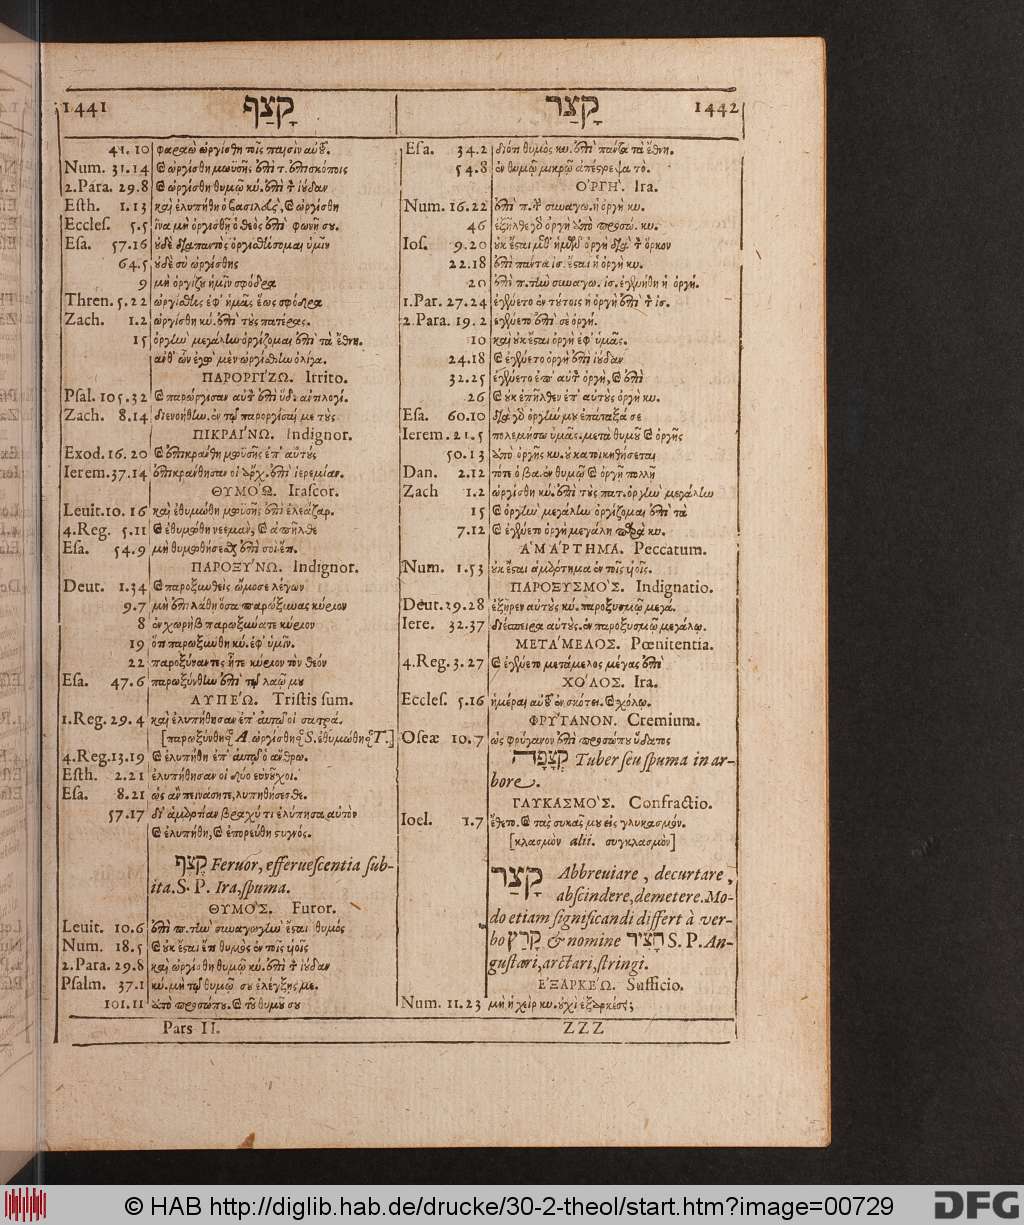 1441 קָצַף
41.10 φαραὼ ὠργίσθη τοῖς παισὶν αὐτοῦ.
Num. 31.14 καὶ ὠργίσθη μωϋσῆς ἐπὶ τ. ἐπισκόποις
2.Para. 29.8 καὶ ὠργίσθη θυμῷ κύ. ἐπὶ τ ἰούδαν
Esth. 1.13 καὶ ἐλυπήθη ὁ βασιλεὺς, καὶ ὠργίσθη
Eccles. 5.5 ἵνα μὴ ὀργισθῇ ὁ θεὸς ἐπὶ φωνῇ σου.
Esa. 57.16 οὐδὲ διαπαντὸς ὀργισθήσομαι ὑμῖν
64.5 ἰδοὺ σὺ ὠργίσθης
9 μὴ ὀργίζου ἡμῖν σφόδρα
Thren. 5.22 ὠργίσθης ἐφ' ἡμᾶς ἕως σφόδρα
Zach. 1.2 ὠργίσθη κύ. ἐπὶ τοὺς πατέρας.
15 ὀργὴν μεγάλην ὀργίζομαι ἐπὶ τὰ ἔθνη.
ἀνθ' ὧν ἐγὼ μὲν ὠργίσθην ὀλίγα.
ΠΑΡΟΡΓΊΖΩ. Irrito.
Psal. 105.32 καὶ παρώργισαν αὐτ ἐπὶ ὕδ. ἀντιλογί.
Zach. 8.14 διενοήθην ἐν τῷ παροργίσαι με τοὺς
ΠΙΚΡΑΊΝΩ. Indignor.
Exod. 16.20 καὶ ἐπικράνθη μωϋσῆς ἐπ' αὐτούς
Ierem. 37.14 ἐπικράνθησαν οἱ ἄρχ. ἐπὶ ἱερεμίαν.
ΘΥΜΌΩ. Irascor.
Leuit. 10.16 καὶ ἐθυμώθη μωϋσῆς ἐπὶ ἐλεάζαρ.
4.Reg. 5.11 καὶ ἐθυμώθη νεεμὰν, καὶ ἀπῆλθε
Esa. 54.9 μὴ θυμωθήσεσθαι ἐπὶ σοὶ ἔτι.
ΠΑΡΟΞΎΝΩ. Indignor.
Deut. 1.34 καὶ παροξυνθεὶς ὤμοσε λέγων
9.7 μὴ ἐπιλάθῃ ὅσα παρώξυνας κύριον
8 ἐν χωρὴβ παρωξύνατε κύριον
19 ὅτι παρωξύνθη κύ. ἐφ' ὑμῖν.
22 παροξύναντες ἦτε κύριον τὸν θεόν
Esa. 47.6 παρωξύνθην ἐπὶ τῷ λαῷ μου
ΛΥΠΈΩ. Tristis sum.
1.Reg. 29.4 καὶ ἐλυπήθησαν ἐπ' αὐτῷ οἱ σατρά.
[παρωξύνθησ A ὠργίσθησ S. ἐθυμώθησ T.]
4.Reg. 13.19 καὶ ἐλυπήθη ἐπ' αὐτῷ ὁ ἄνθρω.
Esth. 2.21 ἐλυπήθησαν οἱ δύο εὐνοῦχοι.
Esa. 8.21 ὡς ἂν πεινάσητε, λυπηθήσεσθε.
57.17 δι' ἁμαρτίαν βραχύ τι ἐλύπησα αὐτὸν
καὶ ἐλυπήθη, καὶ ἐπορεύθη στυγνός.
קֶצֶף Feruor, efferuescentia sub-
ita. S. P. Ira, spuma.
ΘΥΜΌΣ. Furor.
Leuit. 10.6 ἐπὶ π. τὴν συναγωγὴν ἔσται θυμός
Num. 18.5 καὶ οὐκ ἔσται ἔτι θυμὸς ἐν τοῖς υἱοῖς
2.Para. 29.8 καὶ ὠργίσθη θυμῷ κύ. ἐπὶ τ ἰούδαν
Psalm. 37.1 κύ. μὴ τῷ θυμῷ σου ἐλέγξῃς με.
101.11 ἀπὸ προσώπου. καὶ τοῦ θυμοῦ σου
Pars II.
קָצַר 1442
Esa. 34.2 διότι θυμὸς κυ. ἐπὶ πάντα τὰ ἔθνη.
54.8 ἐν θυμῷ μικρῷ ἀπέστρεψα τὸ.
ὈΡΓῊ. Ira.
Num. 16.22 ἐπὶ π. τ συναγω. ἡ ὀργὴ κυ.
46 ἐξῆλθε γὰρ ὀργὴ ἀπὸ προσώ. κυ.
Ios. 9.20 οὐκ ἔσται μεθ' ἡμῶν ὀργὴ διὰ τ ὅρκον
22.18 ἐπὶ πάντα ἰσ. ἔσται ἡ ὀργὴ κυ.
20 ἐπὶ π. τὴν συναγω. ἰσ. ἐγενήθη ἡ ὀργή.
1.Par. 27.24 ἐγένετο ἐν τούτοις ἡ ὀργὴ ἐπὶ τ ἰσ.
2.Para. 19.2 ἐγένετο ἐπὶ σὲ ὀργή.
10 καὶ οὐκ ἔσται ὀργὴ ἐφ' ὑμᾶς.
24.18 καὶ ἐγένετο ὀργὴ ἐπὶ ἰούδαν
32.25 ἐγένετο ἐπ' αὐτ ὀργὴ, καὶ ἐπὶ
26 καὶ οὐκ ἐπῆλθεν ἐπ' αὐτοὺς ὀργὴ κυ.
Esa. 60.10 διὰ γὰρ ὀργήν μου ἐπάταξά σε
Ierem. 21.5 πολεμήσω ὑμᾶς. μετὰ θυμοῦ καὶ ὀργῆς
50.13 ἀπὸ ὀργῆς κυ. οὐ κατοικηθήσεται
Dan. 2.12 τότε ὁ βα. ἐν θυμῷ καὶ ὀργῇ πολλῇ
Zach 1.2 ὠργίσθη κύ. ἐπὶ τοὺς πατ. ὀργὴν μεγάλην
15 καὶ ὀργὴν μεγάλην ὀργίζομαι ἐπὶ τὰ
7.12 καὶ ἐγένετο ὀργὴ μεγάλη παρὰ κυ.
ἉΜΆΡΤΗΜΑ. Peccatum.
Num. 1.53 οὐκ ἔσται ἁμάρτημα ἐν τοῖς υἱοῖς.
ΠΑΡΟΞΥΣΜΌΣ. Indignatio.
Deut. 29.28 ἐξῆρεν αὐτοὺς κύ. παροξυσμῷ μεγά.
Iere. 32.37 διέσπειρα αὐτοὺς. ἐν παροξυσμῷ μεγάλῳ.
ΜΕΤΆΜΕΛΟΣ. Pœnitentia.
4.Reg. 3.27 καὶ ἐγένετο μετάμελος μέγας ἐπὶ
ΧΌΛΟΣ. Ira.
Eccles. 5.16 ἡμέραι αὐτοῦ ἐν σκότει. καὶ χόλῳ.
ΦΡΎΓΑΝΟΝ. Cremium.
Oseæ 10.7 ὡς φρύγανον ἐπὶ προσώπου ὕδατος
קְצָפָה Tuber seu spuma in ar-
bore.
ΓΛΥΚΑΣΜΌΣ. Confractio.
Ioel. 1.7 ἔθετο. καὶ τὰς συκᾶς μου εἰς γλυκασμόν.
[κλασμὸν alii. συγκλασμὸν]
קָצַר Abbreuiare, decurtare,
abscindere, demetere. Mo-
do etiam significandi differt à ver-
bo קָרַץ & nomine חָצִיר S. P. An-
gustari, arctari, stringi.
ἘΞΑΡΚΈΩ. Sufficio.
Num. 11.23 μὴ ἡ χεὶρ κυ. οὐχὶ ἐξαρκέσει;
ZZZ
© HAB http://diglib.hab.de/drucke/30-2-theol/start.htm?image=00729
DFG